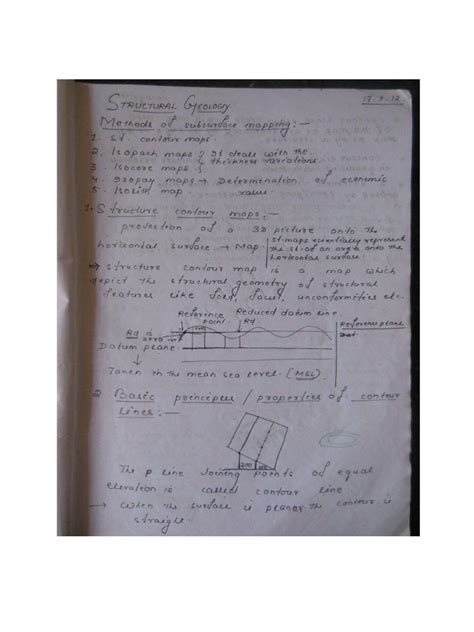 17-7-12
STRUCTURAL GEOLOGY
Methods of subsurface mapping:-
1. St. contour maps.
2. Isopach maps } It deals with the
3. Isocore maps } thickness variations.
4. Isopay maps → Determination of economic
5. Isolid map. value.
1. Structure contour maps:-
projection of a 3D picture onto the
horizontal surface → Map.
st. maps scientifically represent
the st. of an area onto the
horizontal surface.
→ Structure contour map is a map which
depict the structural geometry of structural
features like fold, fault, unconformities etc.
Reference point. Reduced datum line.
Rd
Rd is zero
Reference plane
Datum plane
Taken in the mean sea level. (MSL)
2 Basic principles / properties of contour
lines:-
200
The p line joining points of equal
elevation is called contour line.
→ When the surface is planer the contour is
straight.